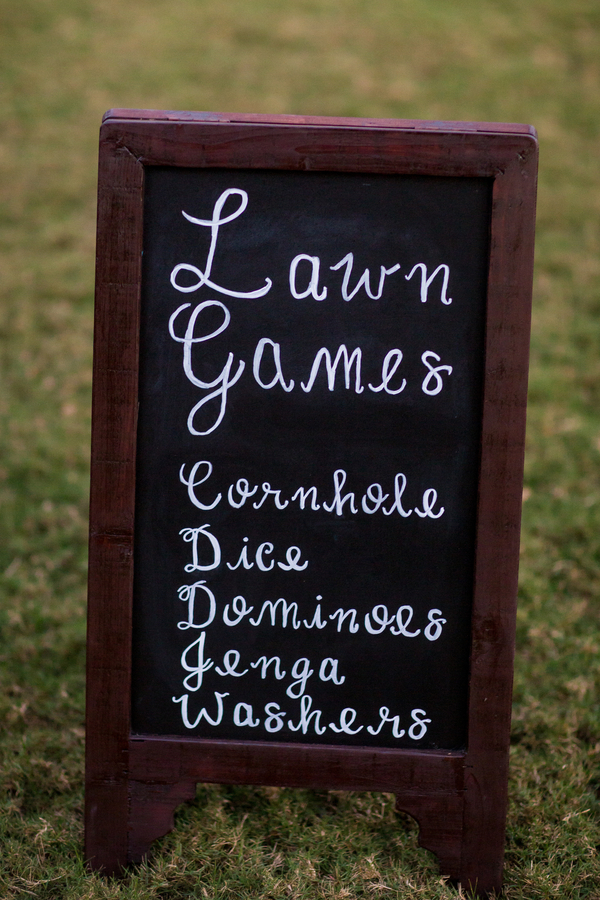 Lawn
Games
Cornhole
Dice
Dominoes
Jenga
Washers